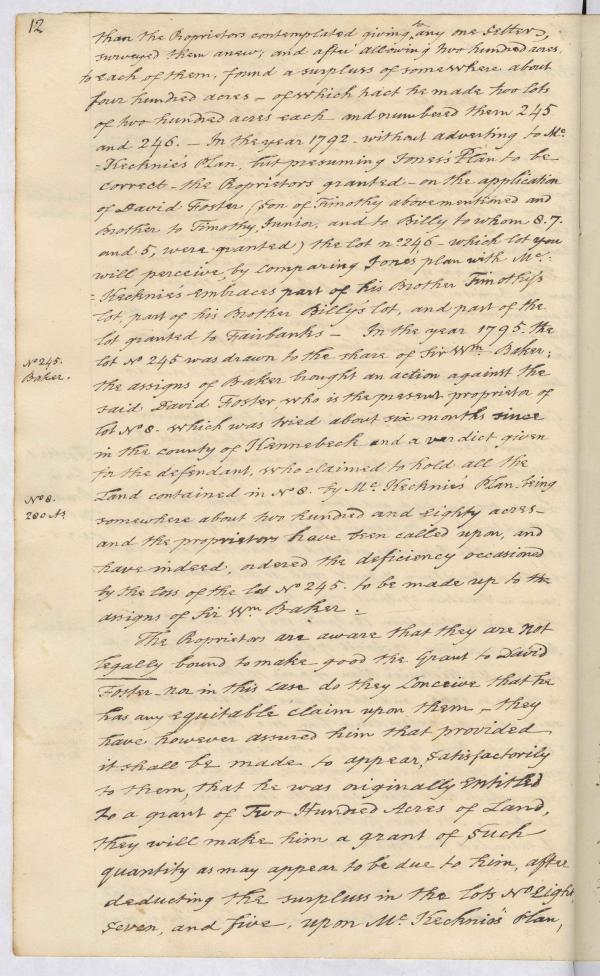 12
than the Proprietors contemplated giving to any one Settler,
surveyed them anew; and after allowing two hundred acres
to each of them, found a surpluss of somewhere about
four hundred acres – of which tract he made two lots
of two hundred acres each and numbered them 245
and 246. – In the year 1792 – without adverting to Mc.
-Kecknie's Plan, but presuming Jones's Plan to be
correct – the Proprietors granted – on the application
of David Foster (son of Timothy abovementioned and
Brother to Timothy Junior, and to Billy to whom 8. 7.
and 5, were granted) the lot no. 246 – which lot you
will perceive, by comparing Jones plan with Mc.
=Kecknie's embraces part of his Brother Timothy's
lot, part of his Brother Billy's lot, and part of the
lot granted to Fairbanks – In the year 1795. the
No 245.
Baker.
lot No 245 was drawn to the share of Sir Wm. Baker;
the assigns of Baker bought an action against the
said David Foster, who is the present proprietor of
lot No 8. which was tried about six months since
in the county of Kennebeck and a verdict given
for the defendant, who claimed to hold all the
No 8.
280 As.
Land contained in No 8. by Mc. Kecknie's Plan being
somewhere about two hundred and eighty acres –
and the proprietors have been called upon, and
have indeed, ordered the deficiency occasioned
by the loss of the lot No 245. to be made up to the
assigns of Sir Wm Baker.
The Proprietors are aware that they are not
legally bound to make good the Grant to David
Foster – nor in this case do they Conceive that he
has any equitable claim upon them – they
have however assured him that provided
it shall be made to appear, satisfactorily
to them, that he was originally Entitled
to a grant of Two Hundred Acres of Land,
they will make him a grant of such
quantity as may appear to be due to him, after
deducting the surpluss in the lots No Eight,
Seven, and five, upon Mc. Kecknies' Plan,